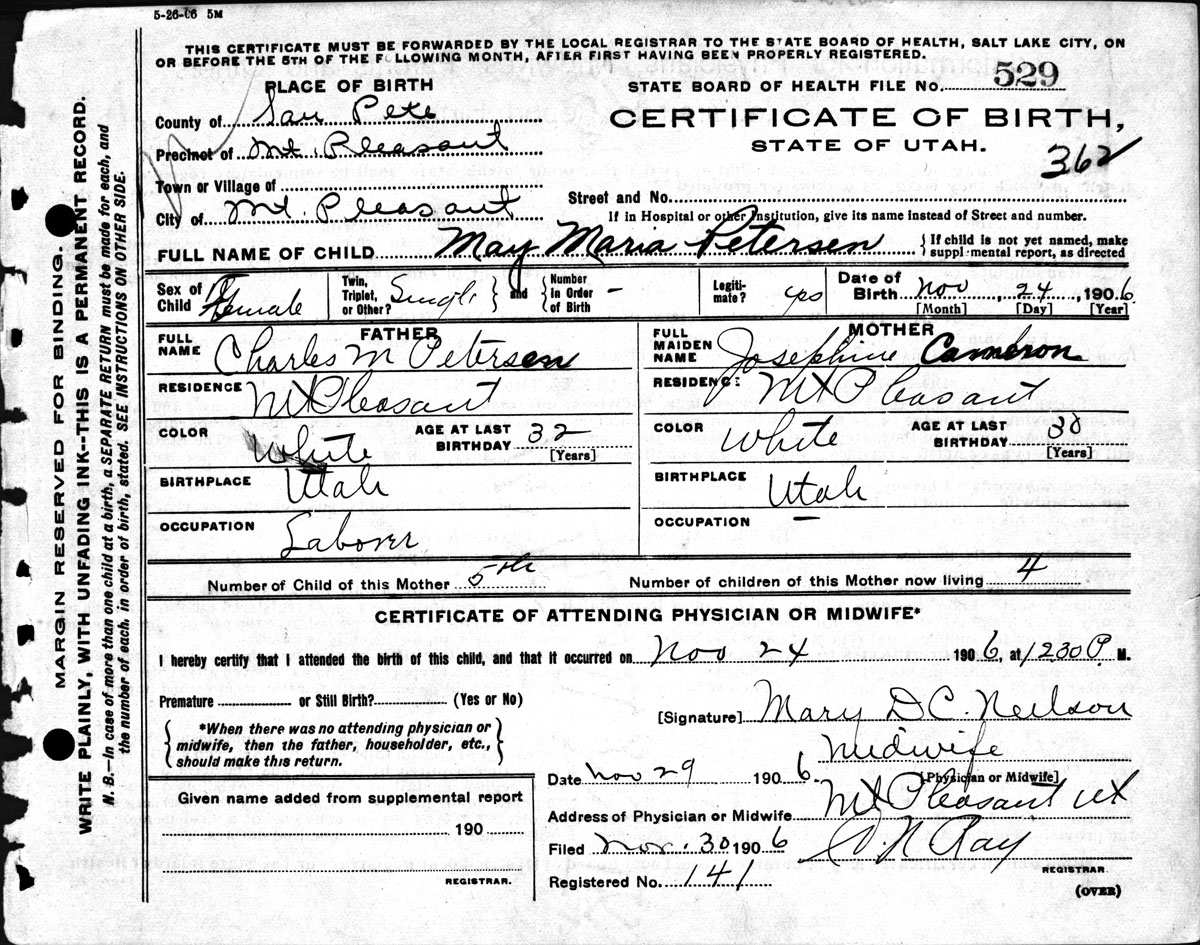 5-26-06 5M
THIS CERTIFICATE MUST BE FORWARDED BY THE LOCAL REGISTRAR TO THE STATE BOARD OF HEALTH, SALT LAKE CITY, ON
OR BEFORE THE 5TH OF THE FOLLOWING MONTH, AFTER FIRST HAVING BEEN PROPERLY REGISTERED.
PLACE OF BIRTH
STATE BOARD OF HEALTH FILE No. 529
County of San Pete
CERTIFICATE OF BIRTH,
STATE OF UTAH.
Precinct of Mt. Pleasant
362
Town or Village of
Street and No.
City of Mt. Pleasant
If in Hospital or other Institution, give its name instead of Street and number.
FULL NAME OF CHILD May Maria Petersen { If child is not yet named, make supplemental report, as directed
Sex of Child Female Twin, Triplet, or Other? Single } and { Number In Order of Birth - Legitimate? yes Date of Birth Nov, 24, 1906
[Month] [Day] [Year]
FATHER MOTHER
FULL NAME Charles M Petersen FULL MAIDEN NAME Josephine Cameron
RESIDENCE Mt Pleasant RESIDENCE Mt Pleasant
COLOR White AGE AT LAST BIRTHDAY 32 [Years] COLOR White AGE AT LAST BIRTHDAY [Years]
BIRTHPLACE Utah BIRTHPLACE Utah
OCCUPATION Laborer OCCUPATION -
Number of Child of this Mother 5th Number of children of this Mother now living 4
CERTIFICATE OF ATTENDING PHYSICIAN OR MIDWIFE*
I hereby certify that I attended the birth of this child, and that it occurred on Nov 24 1906, at 1230 P. M.
Premature or Still Birth? (Yes or No)
[Signature] Mary D C. Neilson
{ *When there was no attending physician or
midwife, then the father, householder, etc.,
should make this return. }
Midwife
Date Nov 29 1906. [Physician or Midwife]
Given name added from supplemental report
Address of Physician or Midwife Mt Pleasant Ut
190
Filed Nov. 30 1906 Ray
REGISTRAR.
REGISTRAR.
Registered No. 141
(OVER)
MARGIN RESERVED FOR BINDING.
WRITE PLAINLY, WITH UNFADING INK--THIS IS A PERMANENT RECORD.
N. B.—In case of more than one child at a birth, a SEPARATE RETURN must be made for each, and
the number of each, in order of birth, stated. SEE INSTRUCTIONS ON OTHER SIDE.